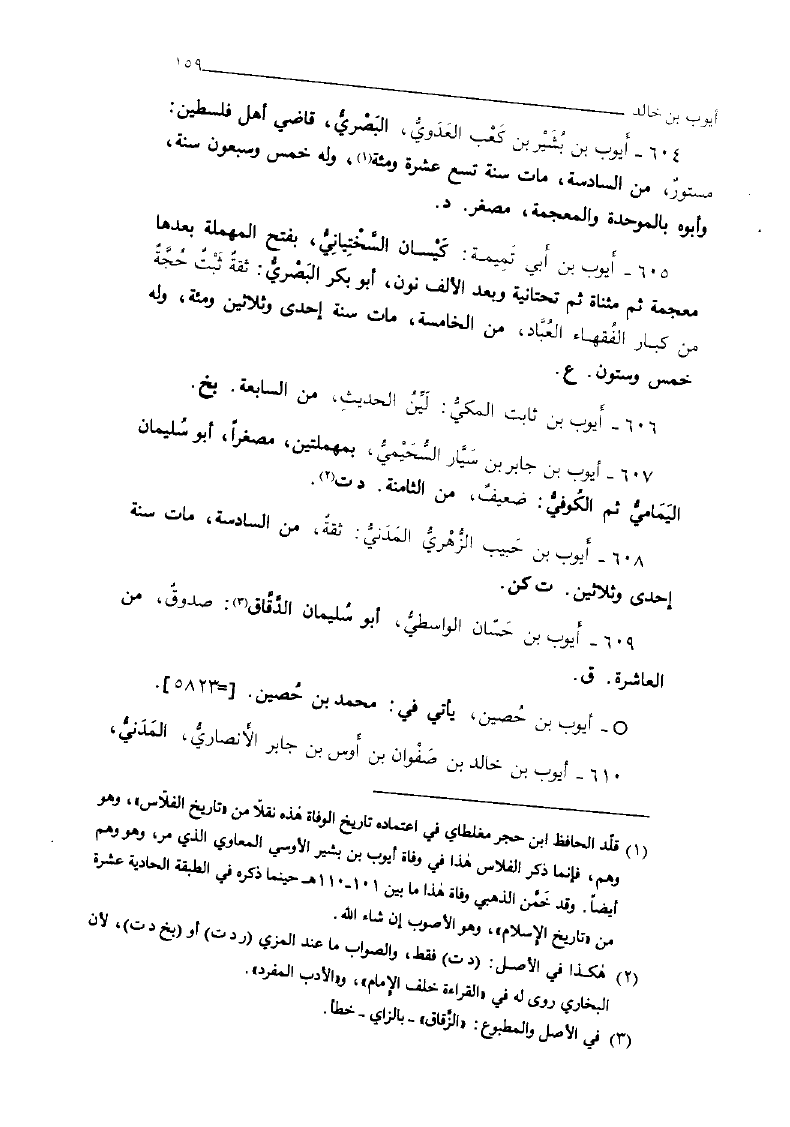 أيوب بن خالد ١٥٩
٦٠٤ ـ أَيوب بن بُشَيْر بن كَعْب العَدَويُّ، البَصْريُّ، قاضي أهل فلسطين:
مستورٌ، من السادسة، مات سنة تسع عشرة ومئة(١)، وله خمس وسبعون سنة،
وأبوه بالموحدة والمعجمة، مصغر. د.
٦٠٥ ـ أَيوب بن أبي تَمِيمـة: كَيْسان السَّخْتِيانيُّ، بفتح المهملة بعدها
معجمة ثم مثناة ثم تحتانية وبعد الألف نون، أبو بكر البَصْريُّ: ثقةٌ ثَبْتٌ حُجَّةٌ
من كبـار الفُقهـاء العُبَّاد، من الخامسة، مات سنة إحدى وثلاثين ومئة، وله
خمس وستون. ع.
٦٠٦ ـ أَيوب بن ثابت المكيُّ: لَيِّنُ الحديثِ، من السابعة. بخ.
٦٠٧ ـ أيوب بن جابر بن سَيَّار السُّحَيْميُّ، بمهملتين، مصغراً، أبو سُليمان
اليَمَاميُّ ثم الكُوفيُّ: ضعيفٌ، من الثامنة. د ت(٢).
٦٠٨ ـ أَيوب بن حَبيب الزُّهْريُّ المَدَنيُّ: ثقةٌ، من السادسة، مات سنة
إحدى وثلاثين. ت كن.
٦٠٩ ـ أَيوب بن حَسّان الواسطيُّ، أبو سُليمان الدَّقَّاق(٣): صدوقٌ، من
العاشرة. ق.
○ ـ أيوب بن حُصين، يأتي في: محمد بن حُصين. [=٥٨٢٣].
٦١٠ ـ أيوب بن خالد بن صَفْوان بن أَوس بن جابر الأَنصاريُّ، المَدَنيُّ،
(١) قلّد الحافظ ابن حجر مغلطاي في اعتماده تاريخ الوفاة هٰذه نقلًا من «تاريخ الفلاس»، وهو
وهم، فإنما ذكر الفلاس هٰذا في وفاة أيوب بن بشير الأوسي المعاوي الذي مر، وهو وهم
أيضاً. وقد خَمَّن الذهبي وفاة هٰذا ما بين ١٠١ـ١١٠هـ حينما ذكره في الطبقة الحادية عشرة
من «تاريخ الإسلام»، وهو الأصوب إن شاء الله.
(٢) هٰكـذا في الأصـل: (د ت) فقط، والصواب ما عند المزي (ر د ت) أو (بخ د ت)، لأن
البخاري روى له في «القراءة خلف الإمام»، و«الأدب المفرد».
(٣) في الأصل والمطبوع: «الزَّقاق» ـ بالزاي ـ خطأ.